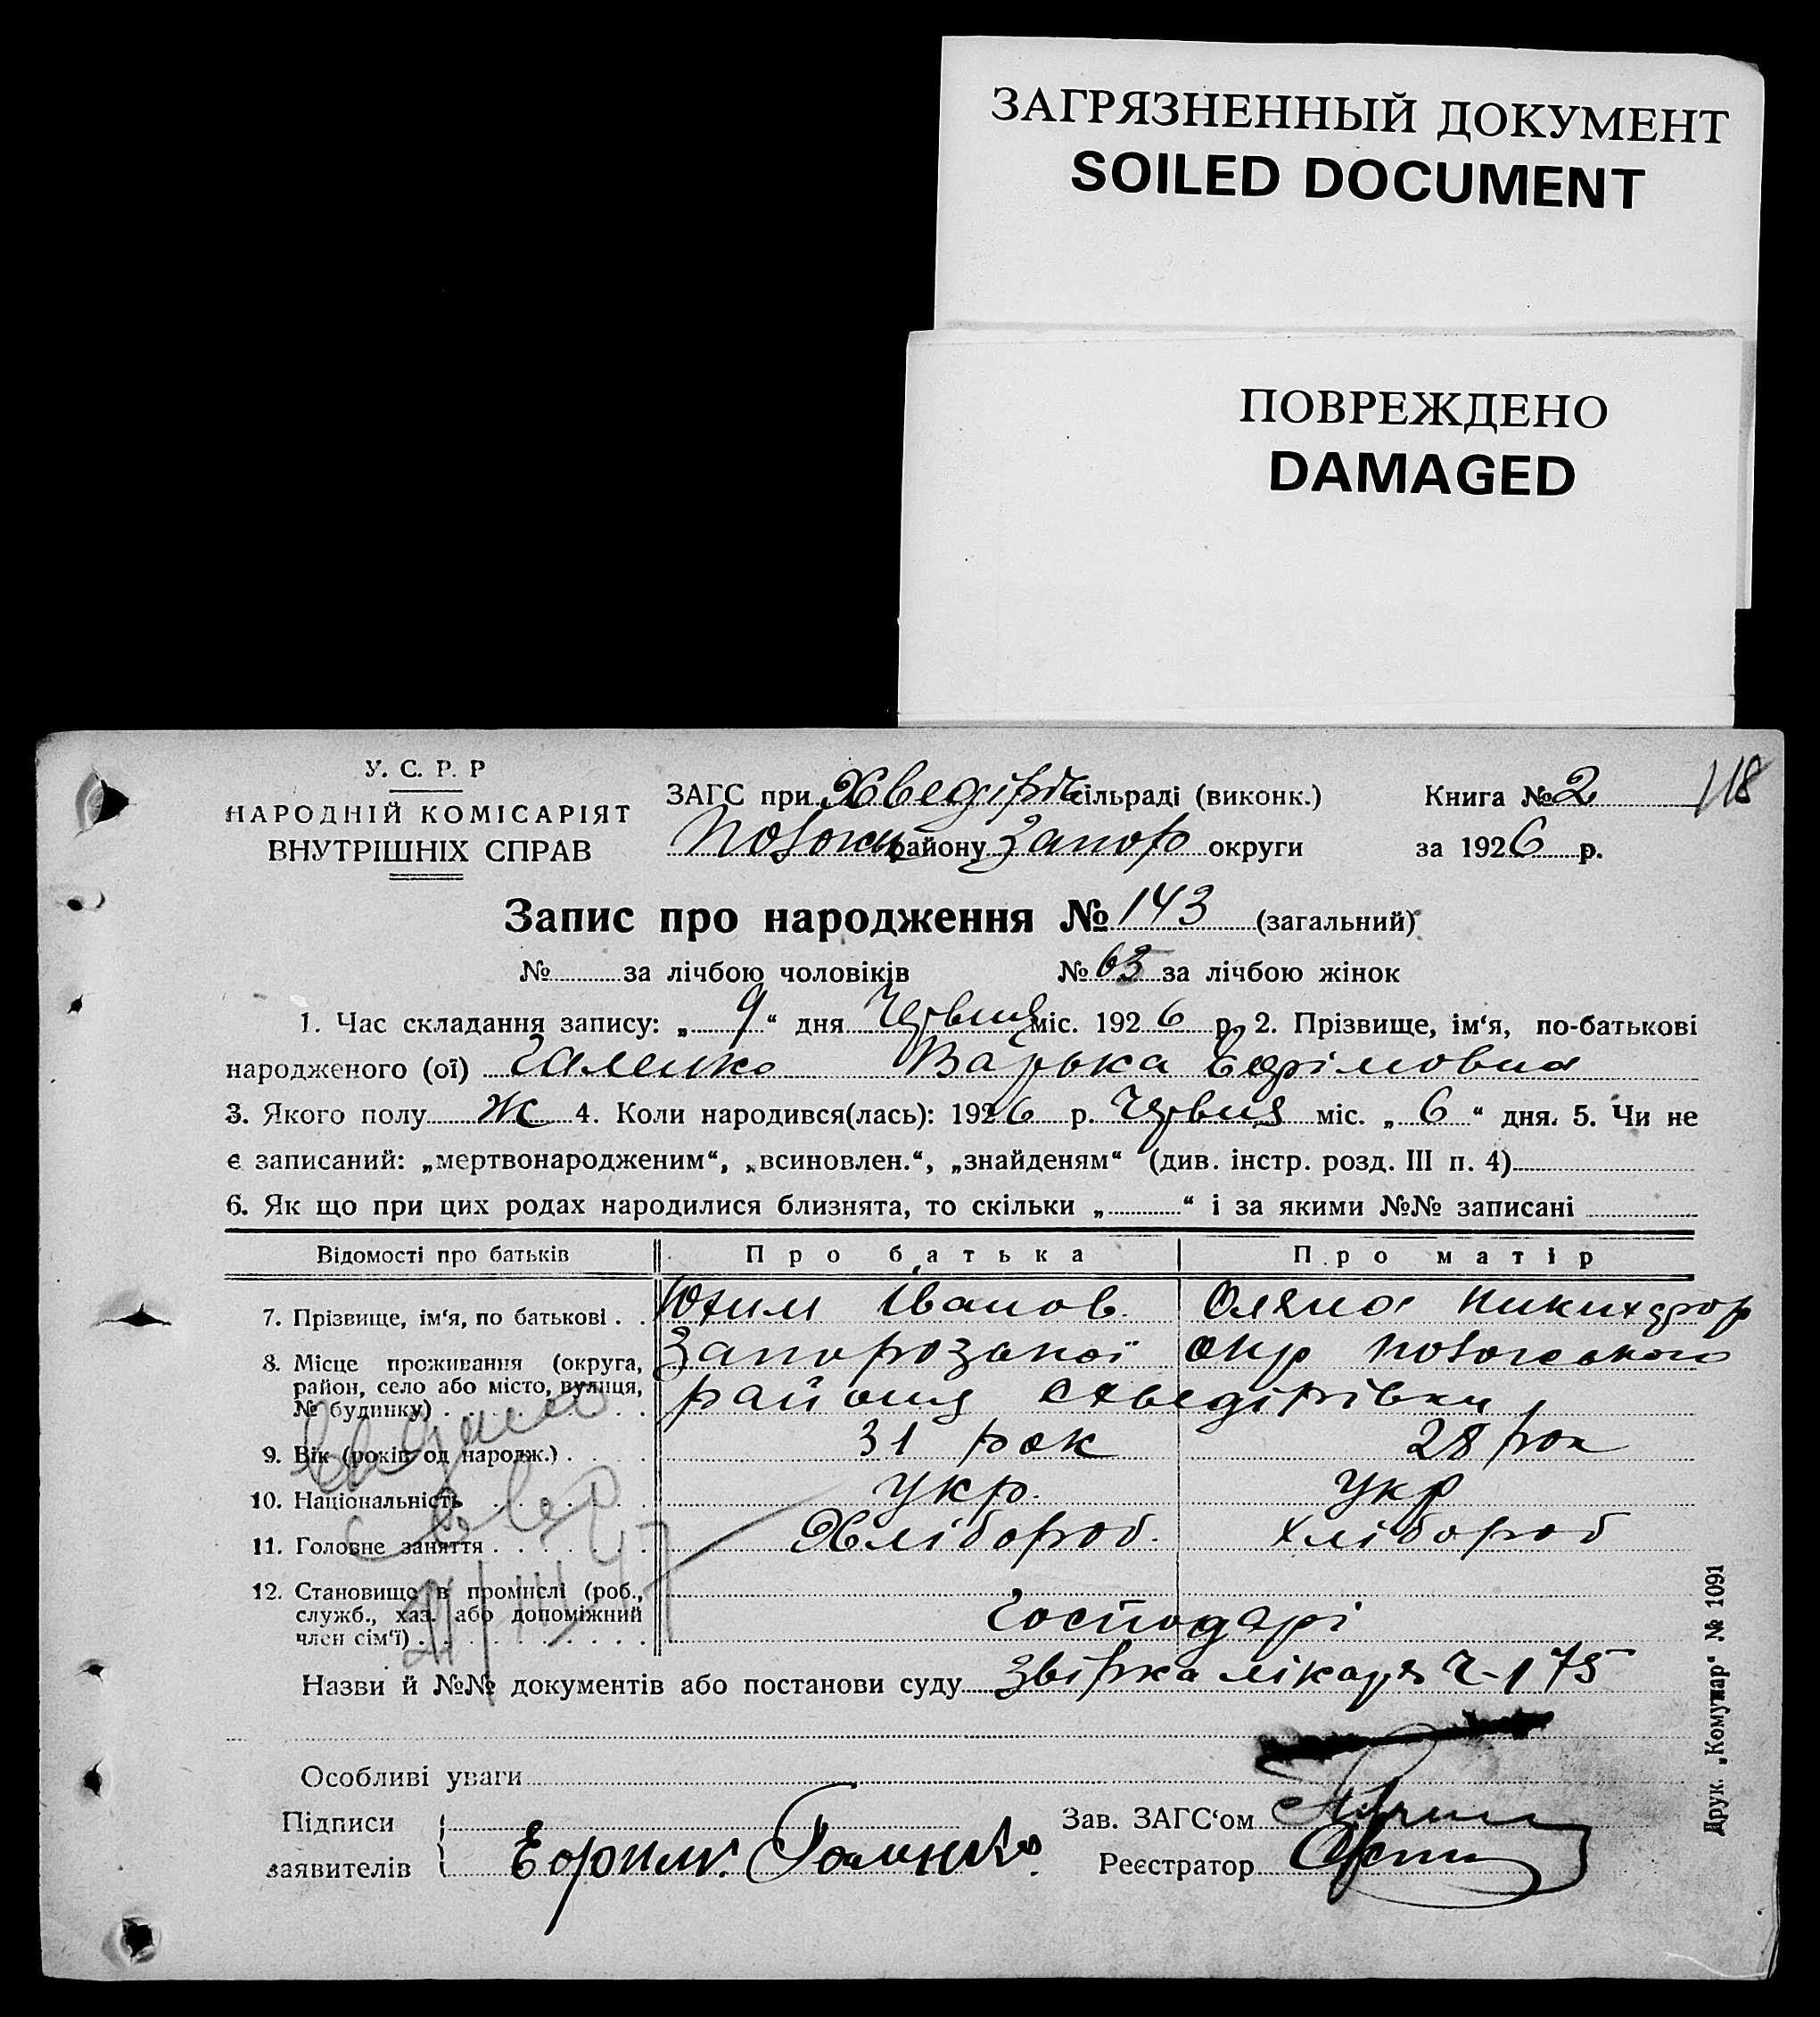 ЗАГРЯЗНЕННЫЙ ДОКУМЕНТ
SOILED DOCUMENT
ПОВРЕЖДЕНО
DAMAGED
У. С. Р. Р
НАРОДНІЙ КОМІСАРІЯТ
ВНУТРІШНІХ СПРАВ
ЗАГС при Хведірів сільраді (виконк.)
району Запор округи
Книга № 2
118
за 1926 р.
Запис про народження № 143 (загальний)
№ за лічбою чоловіків № 63 за лічбою жінок
1. Час складання запису: „ 9 “ дня Червня міс. 1926 р. 2. Прізвище, ім‘я, по-батькові
народженого (ої) Галенко Варька Єфімовна
3. Якого полу Ж 4. Коли народився(лась): 1926 р. Червня міс. „ 6 “ дня. 5. Чи не
є записаний: „мертвонародженим“, „всиновлен.“, „знайденям“ (див. інстр. розд. III п. 4)
6. Як що при цих родах народилися близнята, то скільки „ “ і за якими №№ записані
Відомості про батьків Про батька Про матір
7. Прізвище, ім‘я, по батькові . . Юхим Іванов. Оляна Никихфор
8. Місце проживання (округа, район, село або місто, вулиця, № будинку) Запорозької окр
району Хведірівки
9. Вік (років од народж.) . . . 31 рок 28 рок
10. Національність . . . . . укр. укр
11. Головне заняття . . . . . Хлібороб. хлібороб
12. Становище в промислі (роб., служб., хаз. або допоміжний член сім‘ї) . . . Господарі
Назви й №№ документів або постанови суду Звірка лікаря Ч-175
Особливі уваги
Підписи
заявителів Ефим. Галенко.
Зав. ЗАГС‘ом
Реєстратор
Друк. „Комунар“ № 1091